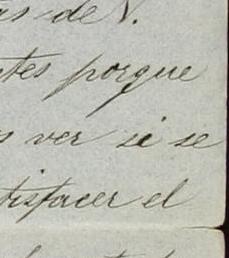 as de V.
ntes porque
s ver si se
tisfacer el